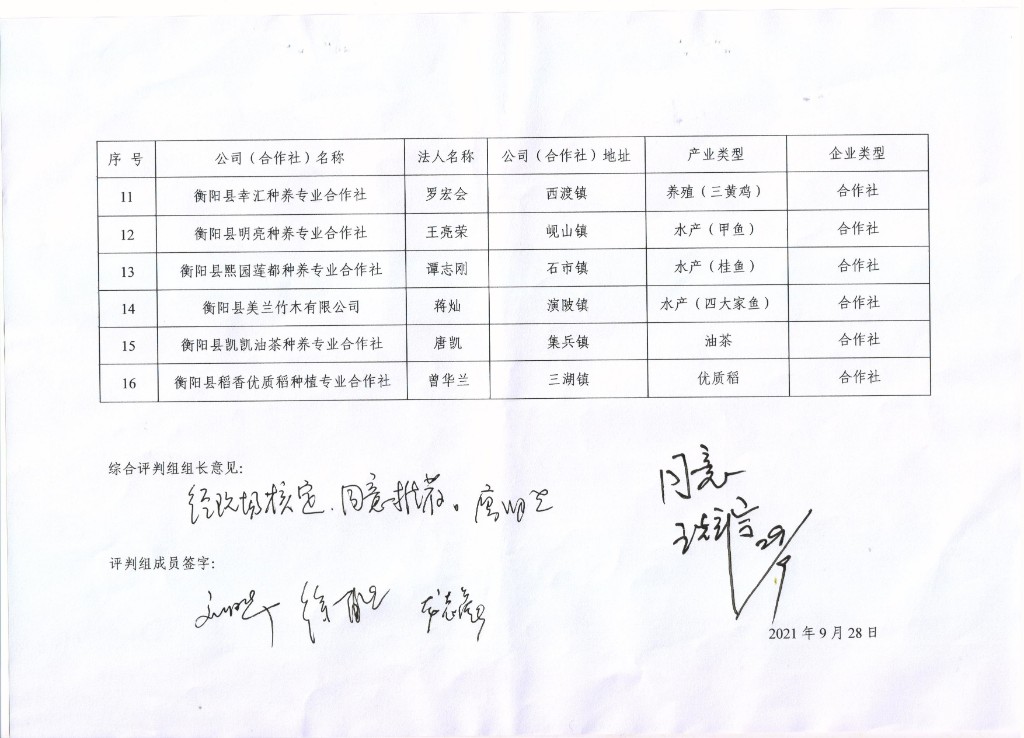 序 号 公司（合作社）名称 法人名称 公司（合作社）地址 产业类型 企业类型
11 衡阳县幸汇种养专业合作社 罗宏会 西渡镇 养殖（三黄鸡） 合作社
12 衡阳县明亮种养专业合作社 王亮荣 岘山镇 水产（甲鱼） 合作社
13 衡阳县熙园莲都种养专业合作社 谭志刚 石市镇 水产（桂鱼） 合作社
14 衡阳县美兰竹木有限公司 蒋灿 演陂镇 水产（四大家鱼） 合作社
15 衡阳县凯凯油茶种养专业合作社 唐凯 集兵镇 油茶 合作社
16 衡阳县稻香优质稻种植专业合作社 曾华兰 三湖镇 优质稻 合作社
综合评判组组长意见:
经现场核定，同意推荐。
同意
29/9
评判组成员签字:
2021 年 9 月 28 日